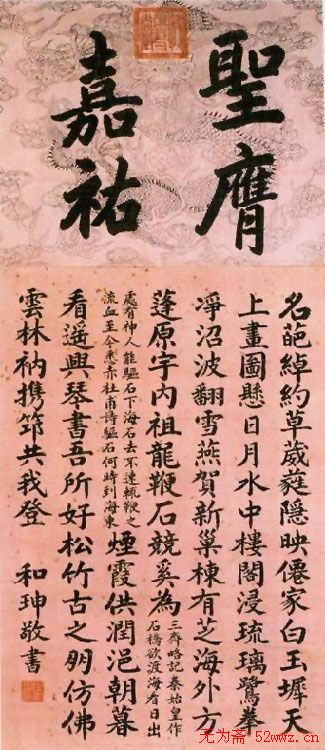 聖膺
嘉祐
名葩綽約草葳蕤隱映僊家白玉墀天
上畫圖懸日月水中樓閣浸琉璃鷺拳
淨沼波翻雪燕賀新巢棟有芝海外方
蓬原宇内祖龍鞭石競奚為
三齊略記秦始皇作
石橋欲渡海看日出
處有神人能驅石下海石去不速輒鞭之
流血至今悉赤杜甫詩驅石何時到海東
煙霞供潤浥朝暮
看遥興琴書吾所好松竹古之朋仿佛
雲林衲攜筇共我登
和珅敬書
无为斋 52wwz.cn